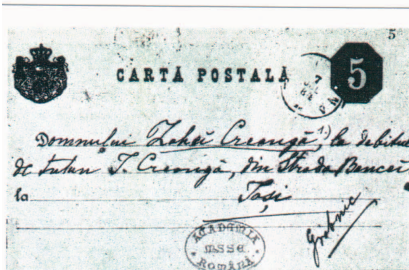 5
CARTĂ POSTALĂ
5
7
Domnului Zahei Creangă, 1) la debitul
de tutun I. Creangă, din Strada Bancei
la Iași
Grabnic
ACADEMIA
MSSE.
ROMÂNĂ